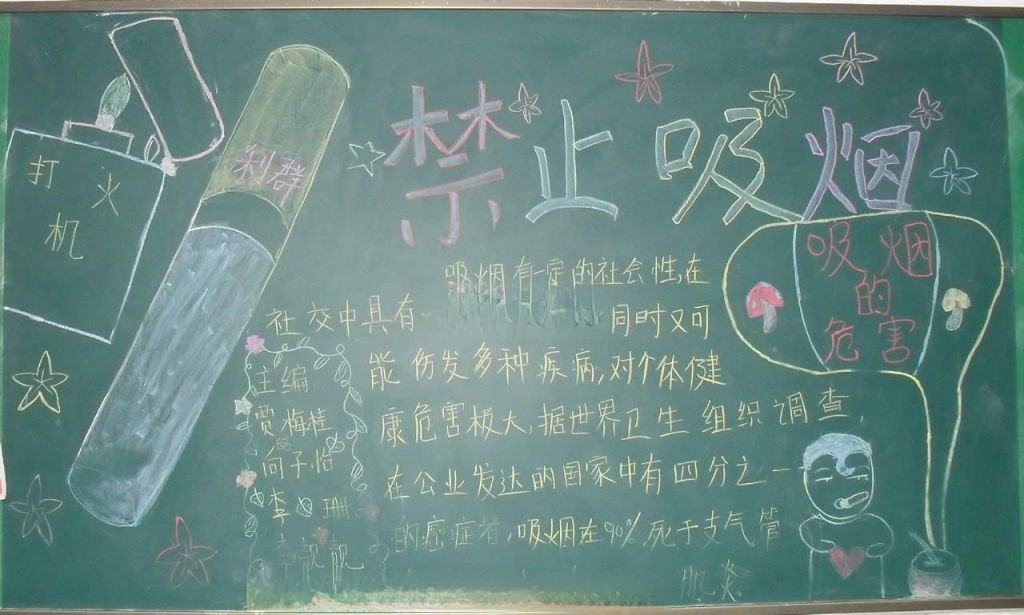 禁止吸烟
打火
机
利群
吸烟
的
危害
吸烟有一定的社会性,在
社交中具有
同时又可
能伤发多种疾病,对个体健
康危害极大,据世界卫生组织调查,
在公业发达的国家中有四分之一
的癌症者,吸烟在90%死于支气管
肌炎
主编
贾梅桂
向子怡
李
珊